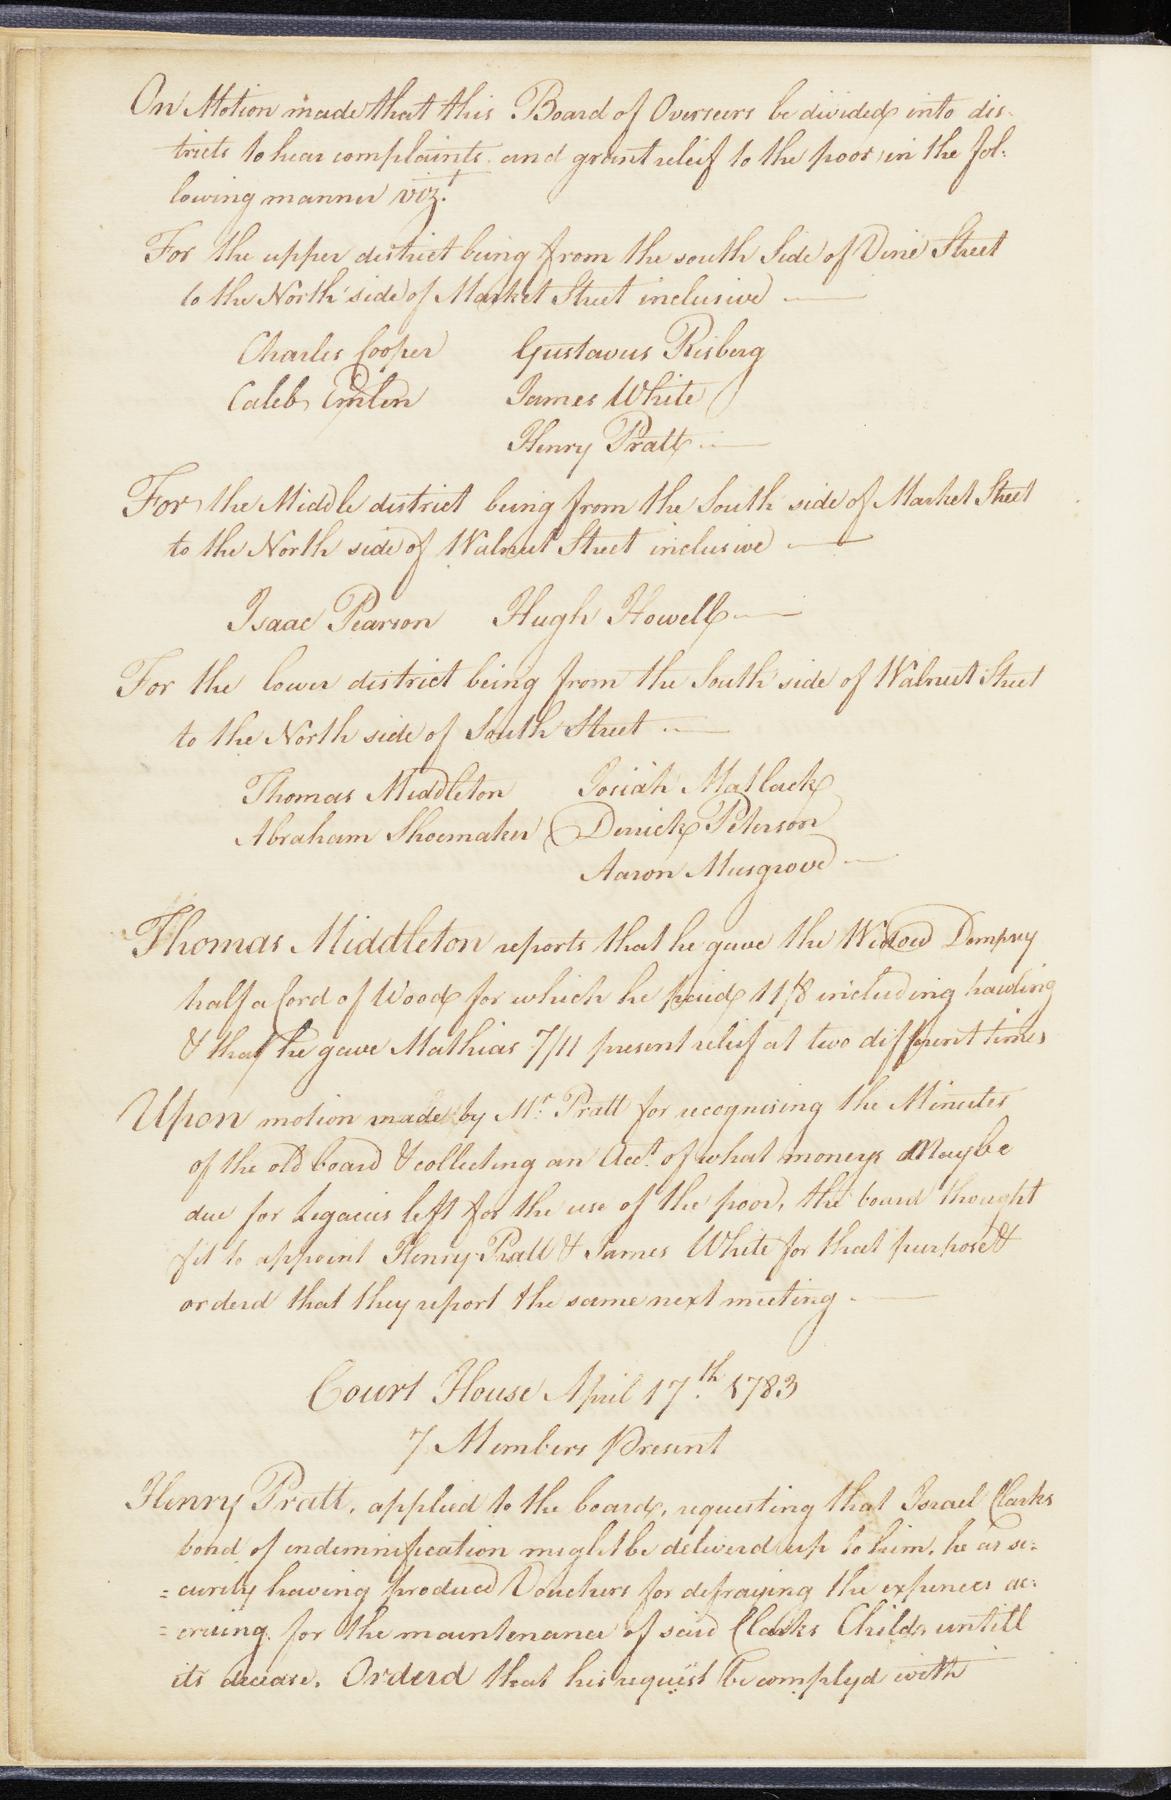 On Motion made that this Board of Overseers be divided into dis-
tricts to hear complaints and grant releif to the poor in the fol-
lowing manner vizt.
For the upper district being from the south Side of Vine Street
to the North side of Market Street inclusive —
Charles Cooper Gustavus Risberg
Caleb Emlen James White
Henry Pratt —
For the Middle district being from the South side of Market Street
to the North side of Walnut Street inclusive —
Isaac Pearson Hugh Howell —
For the lower district being from the South side of Walnut Street
to the North side of South Street —
Thomas Middleton Josiah Matlack
Abraham Shoemaker Derrick Peterson
Aaron Musgrove —
Thomas Middleton reports that he gave the Widow Dempsey
half a Cord of Wood for which he paid 11/8 including hawling
& that he gave Mathias 7/11 present releif at two different times
Upon motion made by Mr. Pratt for recognising the Minutes
of the old board & collecting an Acct. of what moneys May be
due for Legacies left for the use of the poor, the board thought
fit to appoint Henry Pratt & James White for that purpose &
orderd that they report the same next meeting —
Court House April 17th. 1783
7 Members Present
Henry Pratt, applied to the board, requesting that Israel Clarks
bond of indemnification might be deliverd up to him, he as se=
=curity having produced Vouchers for defraying the expences ac=
=crueing for the maintenance of said Clarks Child untill
its decease. Orderd that his request be complyd with